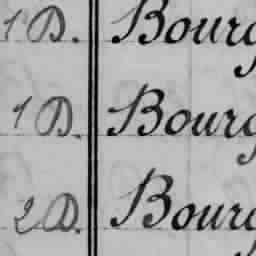 1 D. Bourg
1 D. Bourg
2 D. Bourg